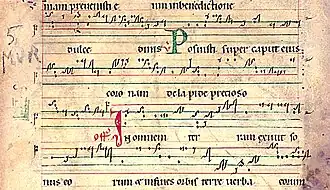 preuenisti e um inbenedictione
dulce dinis Posuisti super caput eius
coro nam delapide precioso
off In omnem ter ram exiuit so
nus eo rum & infines orbis terre uerba eorum